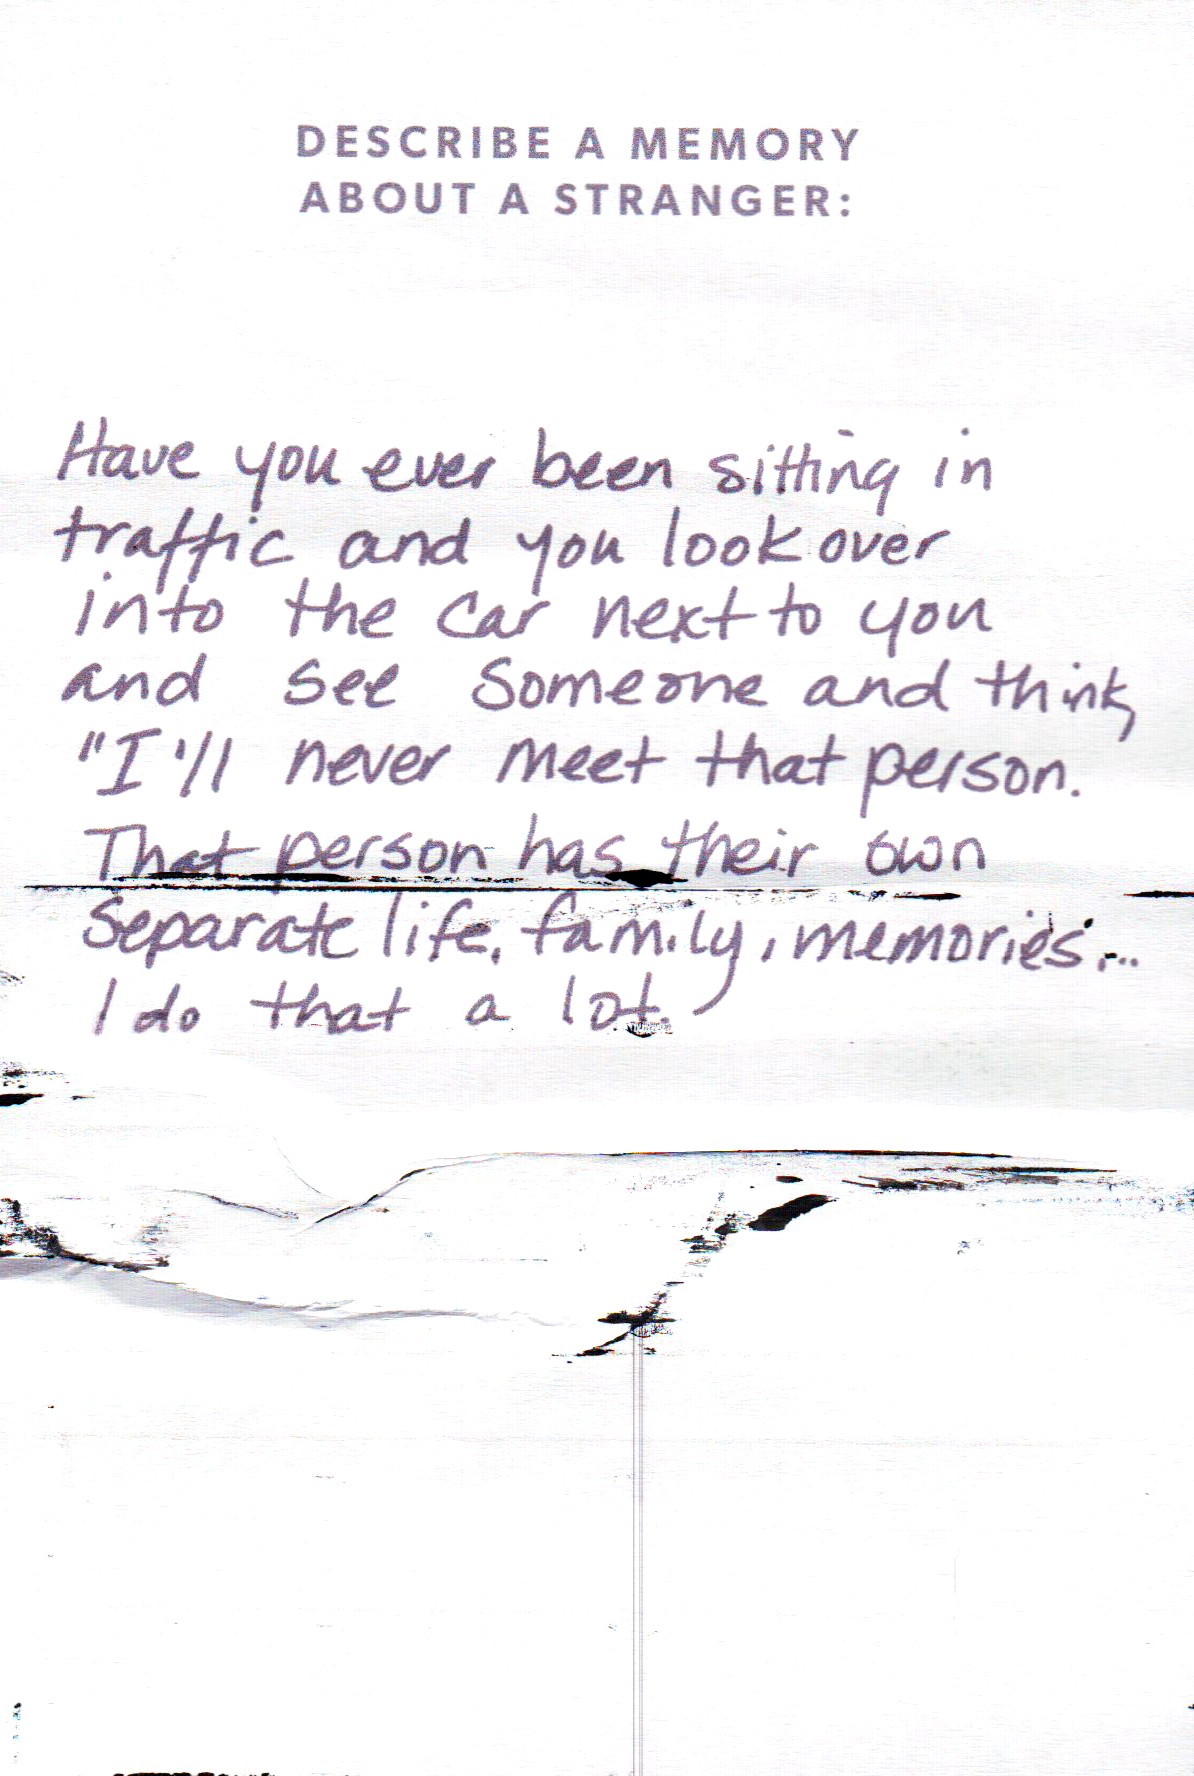 DESCRIBE A MEMORY
ABOUT A STRANGER:
Have you ever been sitting in
traffic and you look over
into the car next to you
and see someone and think,
"I'll never meet that person.
That person has their own
separate life, family, memories...
I do that a lot.